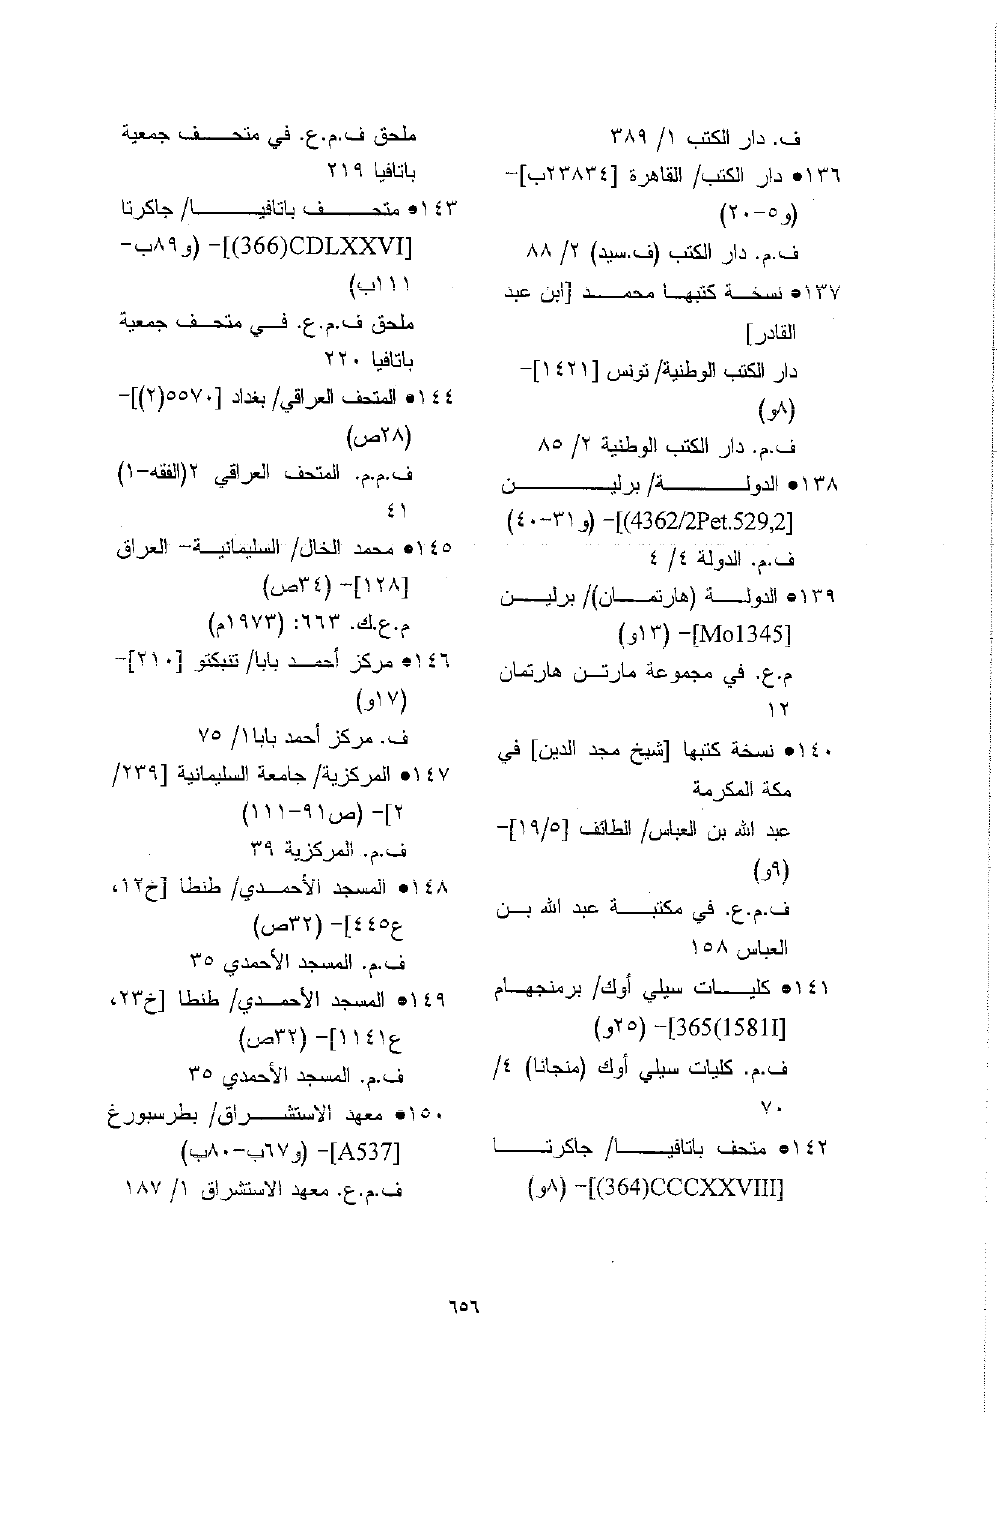 ف. دار الكتب ١/ ٣٨٩
١٣٦• دار الكتب/ القاهرة [٢٣٨٣٤ب]-
(و٥-٢٠)
ف.م. دار الكتب (ف.سيد) ٢/ ٨٨
١٣٧• نسخة كتبها محمد [ابن عبد
القادر]
دار الكتب الوطنية/ تونس [١٤٢١]-
(٨و)
ف.م. دار الكتب الوطنية ٢/ ٨٥
١٣٨• الدولة/ برلين
[4362/2Pet.529,2)]- (و٣١-٤٠)
ف.م. الدولة ٤/ ٤
١٣٩• الدولة (هارتمان)/ برلين
[Mo1345]- (١٣و)
م.ع. في مجموعة مارتن هارتمان
١٢
١٤٠• نسخة كتبها [شيخ مجد الدين] في
مكة المكرمة
عبد الله بن العباس/ الطائف [١٩/٥]-
(٩و)
ف.م.ع. في مكتبة عبد الله بن
العباس ١٥٨
١٤١• كليات سيلي أوك/ برمنجهام
[365(1581I]- (٢٥و)
ف.م. كليات سيلي أوك (منجانا) ٤/
٧٠
١٤٢• متحف باتافيا/ جاكرتا
[(364)CCCXXVIII]- (٨و)
ملحق ف.م.ع. في متحف جمعية
باتافيا ٢١٩
١٤٣• متحف باتافيا/ جاكرتا
[(366)CDLXXVI]- (و٨٩ب-
١١١ب)
ملحق ف.م.ع. في متحف جمعية
باتافيا ٢٢٠
١٤٤• المتحف العراقي/ بغداد [٥٥٧٠(٢)]-
(٢٨ص)
ف.م.م. المتحف العراقي ٢(الفقه-١)
٤١
١٤٥• محمد الخال/ السليمانية- العراق
[١٢٨]- (٣٤ص)
م.ع.ك. ٦٦٣: (١٩٧٣م)
١٤٦• مركز أحمد بابا/ تنبكتو [٢١٠]-
(١٧و)
ف. مركز أحمد بابا ١/ ٧٥
١٤٧• المركزية/ جامعة السليمانية [٢٣٩/
٢]- (ص٩١-١١١)
ف.م. المركزية ٣٩
١٤٨• المسجد الأحمدي/ طنطا [خ١٢،
ع٤٤٥]- (٣٢ص)
ف.م. المسجد الأحمدي ٣٥
١٤٩• المسجد الأحمدي/ طنطا [خ٢٣،
ع١١٤١]- (٣٢ص)
ف.م. المسجد الأحمدي ٣٥
١٥٠• معهد الاستشراق/ بطرسبورغ
[A537]- (و٦٧ب-٨٠ب)
ف.م.ع. معهد الاستشراق ١/ ١٨٧
٦٥٦